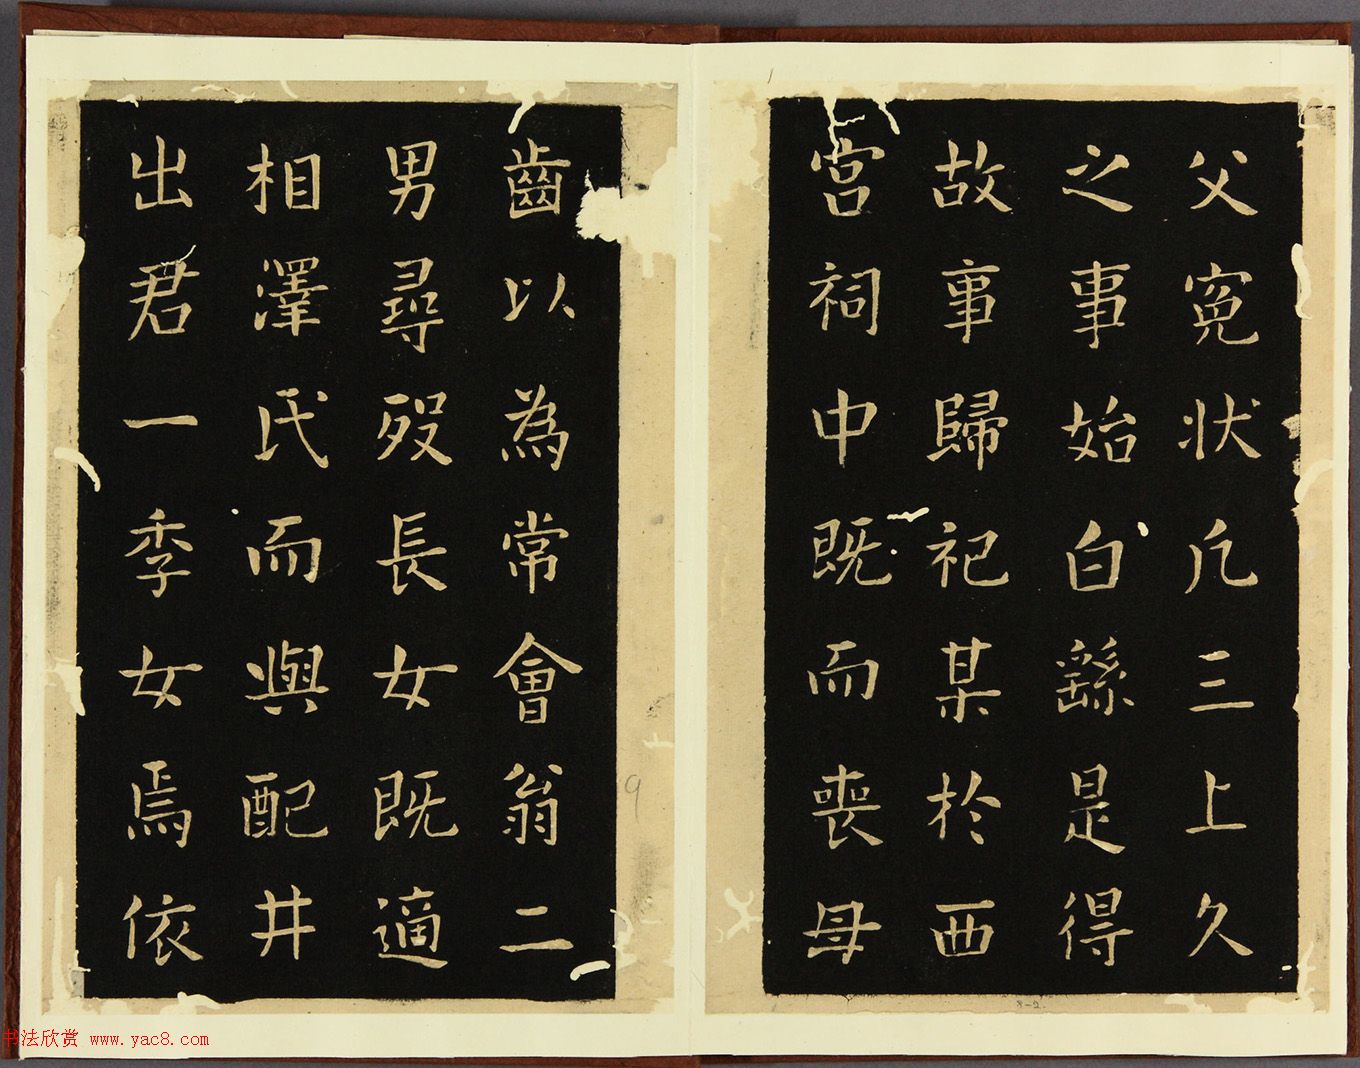 父寃状凢三上久
之事始白繇是得
故事歸祀某於西
宫祠中既而喪母
齒以為常會翁二
男尋歿長女既適
相澤氏而與配井
出君一季女焉依
9
8-2
书法欣赏 www.yac8.com